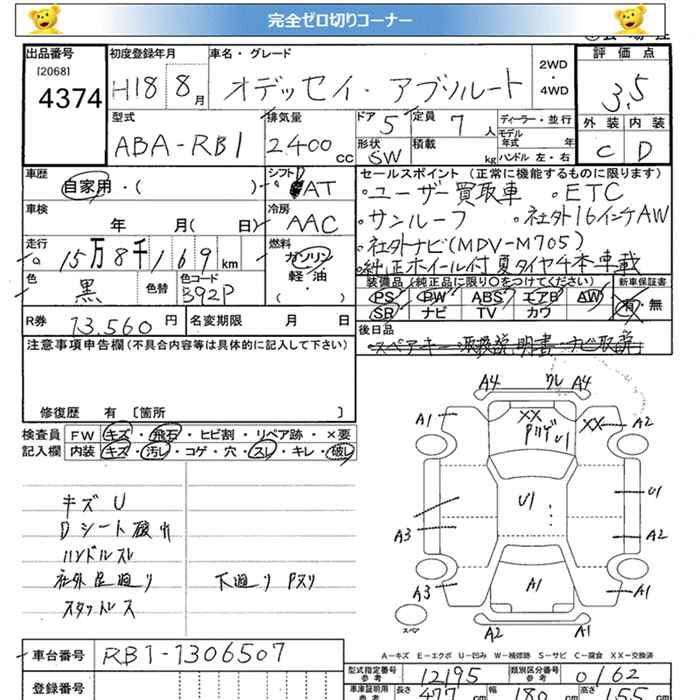 完全ゼロ切りコーナー
出品番号 初度登録年月 車名・グレード 評価点
[2068] 4374 H18 8月 オデッセイ・アブソルート 2WD・4WD 3.5
型式 排気量 ドア 定員 ディーラー・並行 外装 内装
ABA-RB1 2400cc 5 7人 モデル年式 年 C D
形状 SW 積載 kg ハンドル 左・右
車歴 シフト セールスポイント (正常に機能するものに限ります)
自家用・( ) AT ・ユーザー買取車 ・ETC
車検 冷房 ・サンルーフ ・社外16インチAW
年 月( 日) AAC ・社外ナビ(MDV-M705)
走行 燃料 ・純正ホイール付夏タイヤ4本車載
15万8千169km ガソリン・軽油 ( )
色 色替 色コード 装備品 (純正品に限り○をつけてください) 新車保証書
黒 B92P PS PW ABS エアB AW 有・無
SR ナビ TV カワ
R券 13,560円 名変期限 月 日 後日品
注意事項申告欄(不具合内容等は具体的に記入して下さい) スペアキー 取扱説明書 ナビ取説
修復歴 有 〔箇所 〕
検査員 FW キズ・飛石・ヒビ割・リペア跡・×要
記入欄 内装 キズ・汚レ・コゲ・穴・スレ・キレ・破レ
キズ U
Dシート破れ
ハンドルスレ
社外足廻り 下廻りPスリ
スタットレス
A4 ワレ A4
A1 XX XX A2
U1
U1 U1
A3 A2
A3 A1 A1
スペア A2 A1
A-キズ E-エクボ U-凹み W-補修跡 S-サビ C-腐食 XX-交換済
車台番号 RB1-1306507
型式指定番号 参考 12195 類別区分番号 参考 0162
登録番号 車庫証明用 参考 長さ 477cm 幅 180cm 高さ 155cm